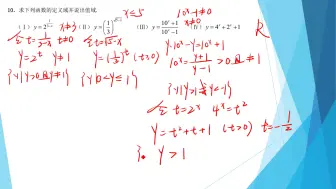 10. 求下列函数的定义域并说出值域.
（Ⅰ）y=2^{\frac{1}{3-x}} x≠3 （Ⅱ）y=(\frac{1}{3})^{\sqrt{5-x}} （Ⅲ）y=\frac{10^x+1}{10^x-1} （Ⅳ）y=4^x+2^x+1
x≤5 10^x-1≠0 x≠0 R
令t=\frac{1}{3-x} t≠0 令t=\sqrt{5-x} y·10^x-y=10^x+1
y=2^t y≠1 y=(\frac{1}{3})^t (t≥0) 10^x=\frac{y+1}{y-1}>0
{y|y>0且y≠1} {y|0<y≤1} {y|y>1或y<-1}
令t=2^x 4^x=t^2
y=t^2+t+1 (t>0) t=-\frac{1}{2}
y>1